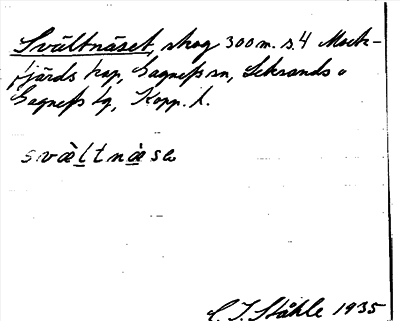 Svältnäset, skog 300 m. s. 4 Mock-
fjärds kap, Gagnefs sn, Leksands o
Gagnefs tg, Kopp. l.
svàltnàse
C. I. Ståhle 1935